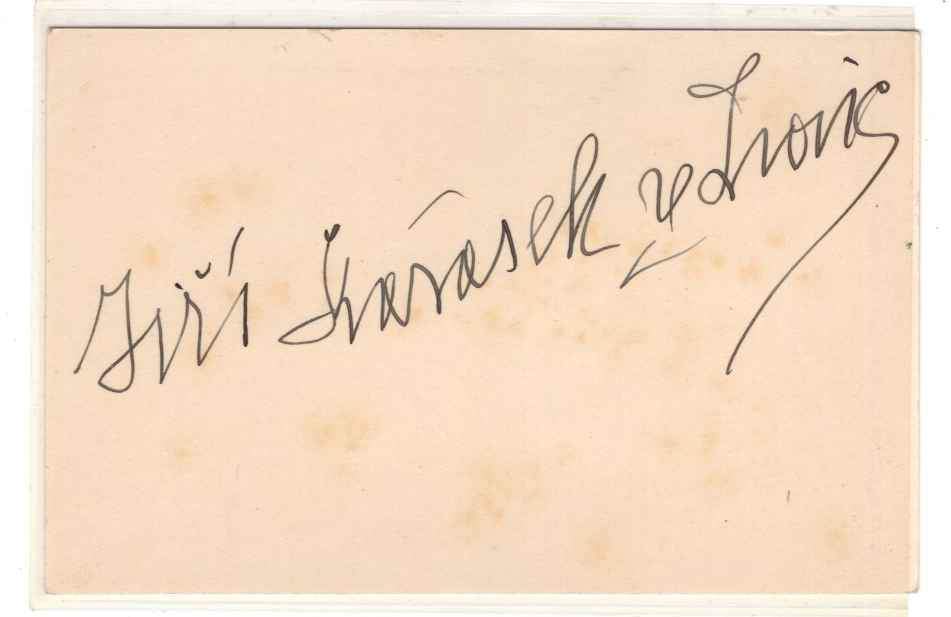 Jiří Karásek ze Lvovic